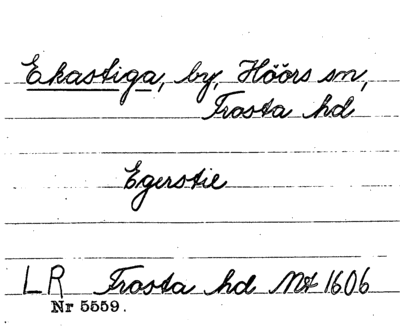 Ekastiga, by, Höörs sn,
Frosta hd
Egerstie
LR Frosta hd Mt 1606
Nr 5559.